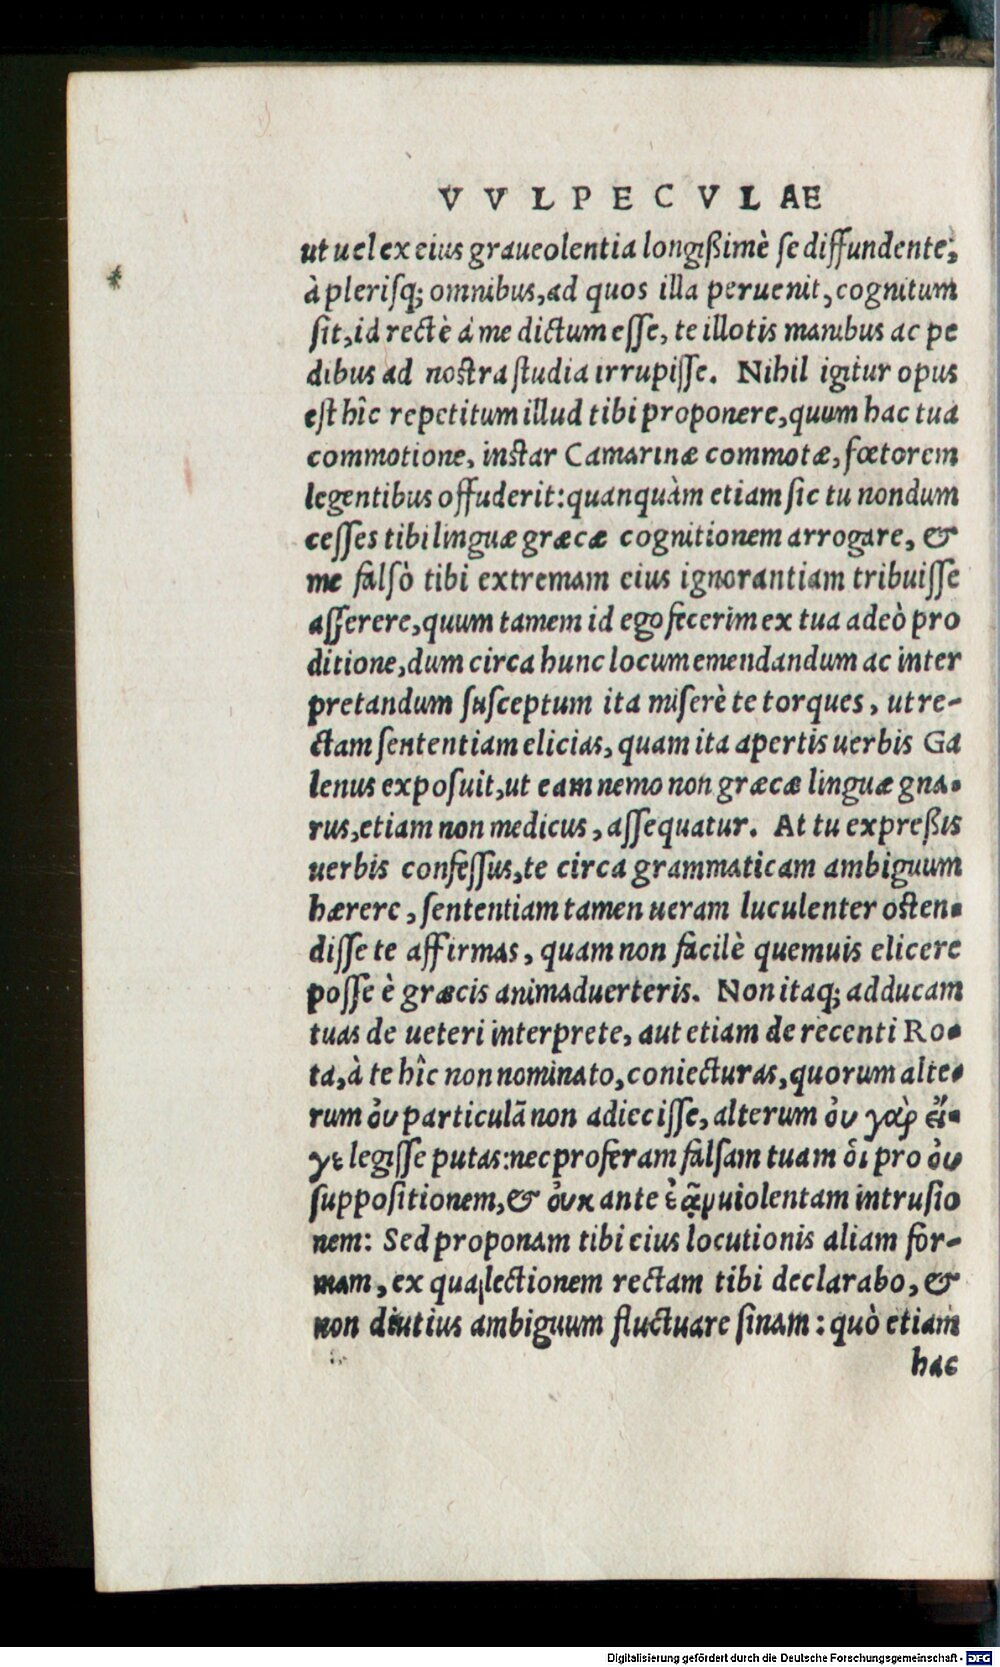 VVLPECVLAE
ut uel ex eius graueolentia longißimè se diffundente,
à plerisq; omnibus, ad quos illa peruenit, cognitum
sit, id rectè à me dictum esse, te illotis manibus ac pe
dibus ad nostra studia irrupisse. Nihil igitur opus
est hîc repetitum illud tibi proponere, quum hac tua
commotione, instar Camarinæ commotæ, fœtorem
legentibus offuderit: quanquàm etiam sic tu nondum
cesses tibi linguæ græcæ cognitionem arrogare, &
me falsò tibi extremam eius ignorantiam tribuisse
asserere, quum tamem id ego fecerim ex tua adeò pro
ditione, dum circa hunc locum emendandum ac inter
pretandum susceptum ita miserè te torques, ut re-
ctam sententiam elicias, quam ita apertis uerbis Ga
lenus exposuit, ut eam nemo non græcæ linguæ gna-
rus, etiam non medicus, assequatur. At tu expreßis
uerbis confessus, te circa grammaticam ambiguum
hærere, sententiam tamen ueram luculenter osten-
disse te affirmas, quam non facilè quemuis elicere
posse è græcis animaduerteris. Non itaq; adducam
tuas de ueteri interprete, aut etiam de recenti Ro-
ta, à te hîc non nominato, coniecturas, quorum alte-
rum ὀυ particulā non adiecisse, alterum ὀυ γὰρ εἴ-
γε legisse putas: nec proferam falsam tuam ὅι pro ὀυ
suppositionem, & ὀυκ ante ἐᾷν uiolentam intrusio
nem: Sed proponam tibi eius locutionis aliam for-
mam, ex qua lectionem rectam tibi declarabo, &
non diutius ambiguum fluctuare sinam: quò etiam
hac
Digitalisierung gefördert durch die Deutsche Forschungsgemeinschaft - DFG